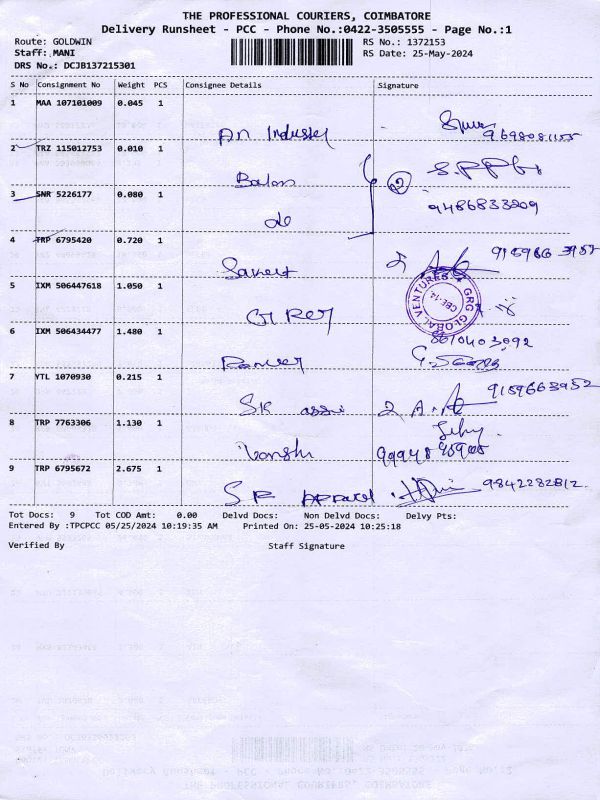 THE PROFESSIONAL COURIERS, COIMBATORE
Delivery Runsheet - PCC - Phone No.:0422-3505555 - Page No.:1
Route: GOLDWIN RS No.: 1372153
Staff: MANI RS Date: 25-May-2024
DRS No.: DCJB137215301
S No Consignment No Weight PCS Consignee Details Signature
1 MAA 107101009 0.045 1
An Industry
2 TRZ 115012753 0.010 1
2
3 SNR 5226177 0.080 1
do 9486833209
4 TRP 6795420 0.720 1
5 IXM 506447618 1.050 1
GRG GLOBAL VENTURES
CBE-14
6 IXM 506434477 1.480 1
8610403092
7 YTL 1070930 0.215 1
SK 9159663952
8 TRP 7763306 1.130 1
Vanshi
9 TRP 6795672 2.675 1
9842282812
Tot Docs: 9 Tot COD Amt: 0.00 Delvd Docs: Non Delvd Docs: Delvy Pts:
Entered By :TPCPCC 05/25/2024 10:19:35 AM Printed On: 25-05-2024 10:25:18
Verified By Staff Signature